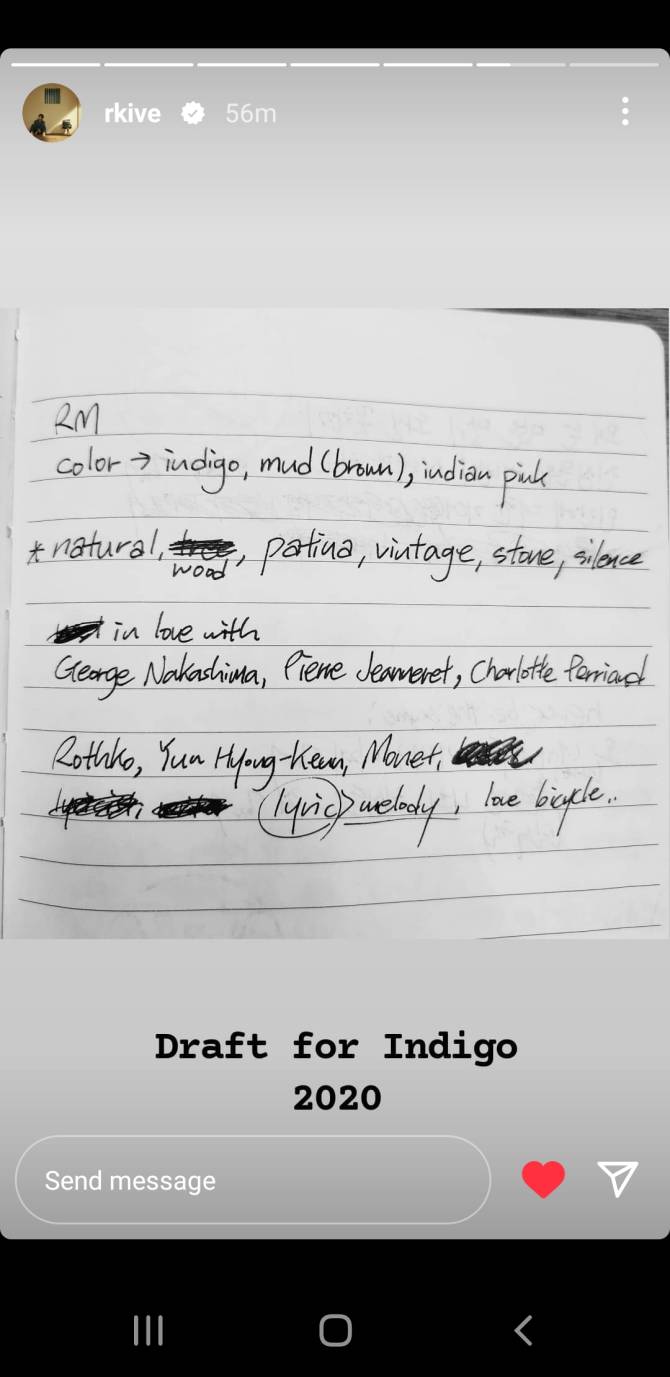 rkive 56m
RM
color → indigo, mud (brown), indian pink
* natural, tree, patina, vintage, stone, silence
wood
in love with
George Nakashima, Pierre Jeanneret, Charlotte Perriand
Rothko, Yun Hyong-Keun, Monet,
(lyric) > melody, love bicycle..
Draft for Indigo
2020
Send message